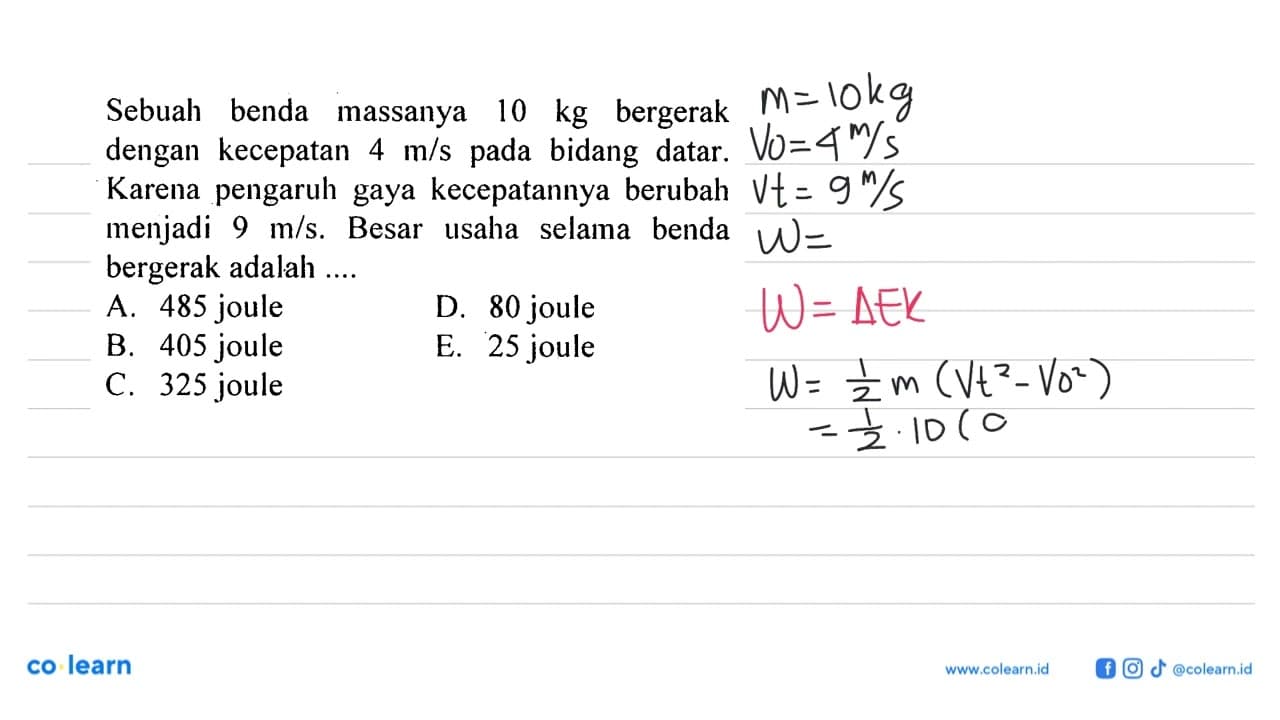 Sebuah benda massanya 10 kg bergerak
dengan kecepatan 4 m/s pada bidang datar.
Karena pengaruh gaya kecepatannya berubah
menjadi 9 m/s. Besar usaha selama benda
bergerak adalah ....
A. 485 joule
B. 405 joule
C. 325 joule
D. 80 joule
E. 25 joule
m=10kg
Vo=4 m/s
Vt = 9 m/s
W=
W= ΔEK
W= 1/2 m (Vt²-Vo²)
= 1/2 . 10 (0
co learn
www.colearn.id
@colearn.id